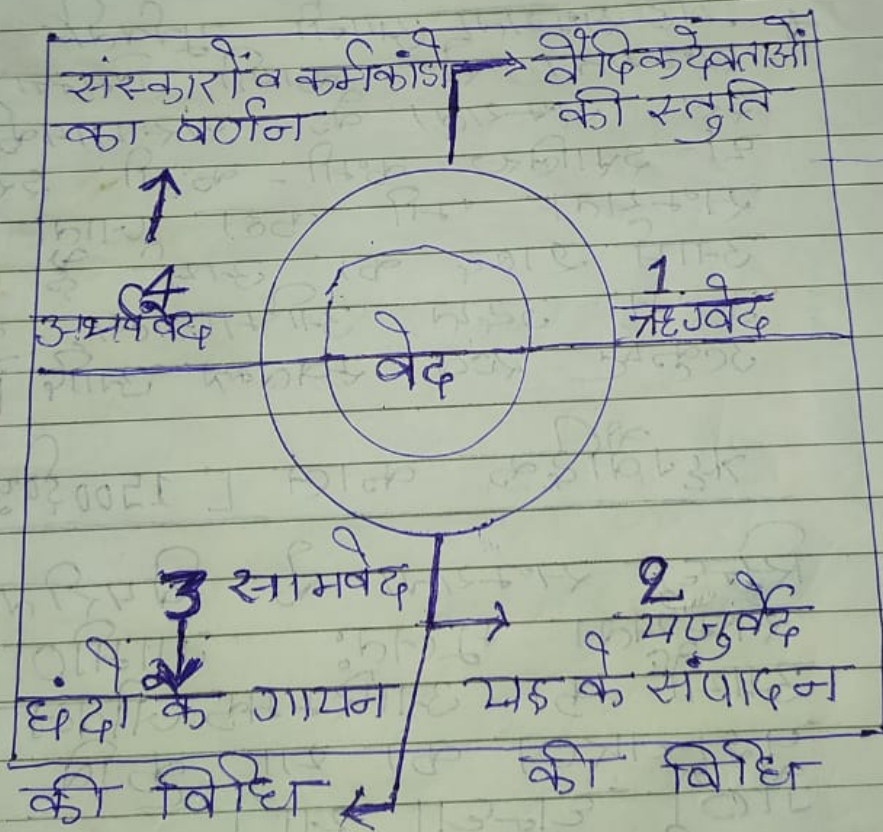 संस्कारों व कर्मकांडो
का वर्णन
वैदिक देवताओं
की स्तुति
4
अथर्ववेद
1.
ऋग्वेद
वेद
3 सामवेद
छंदो के गायन
की विधि
2
यजुर्वेद
के संपादन
की विधि